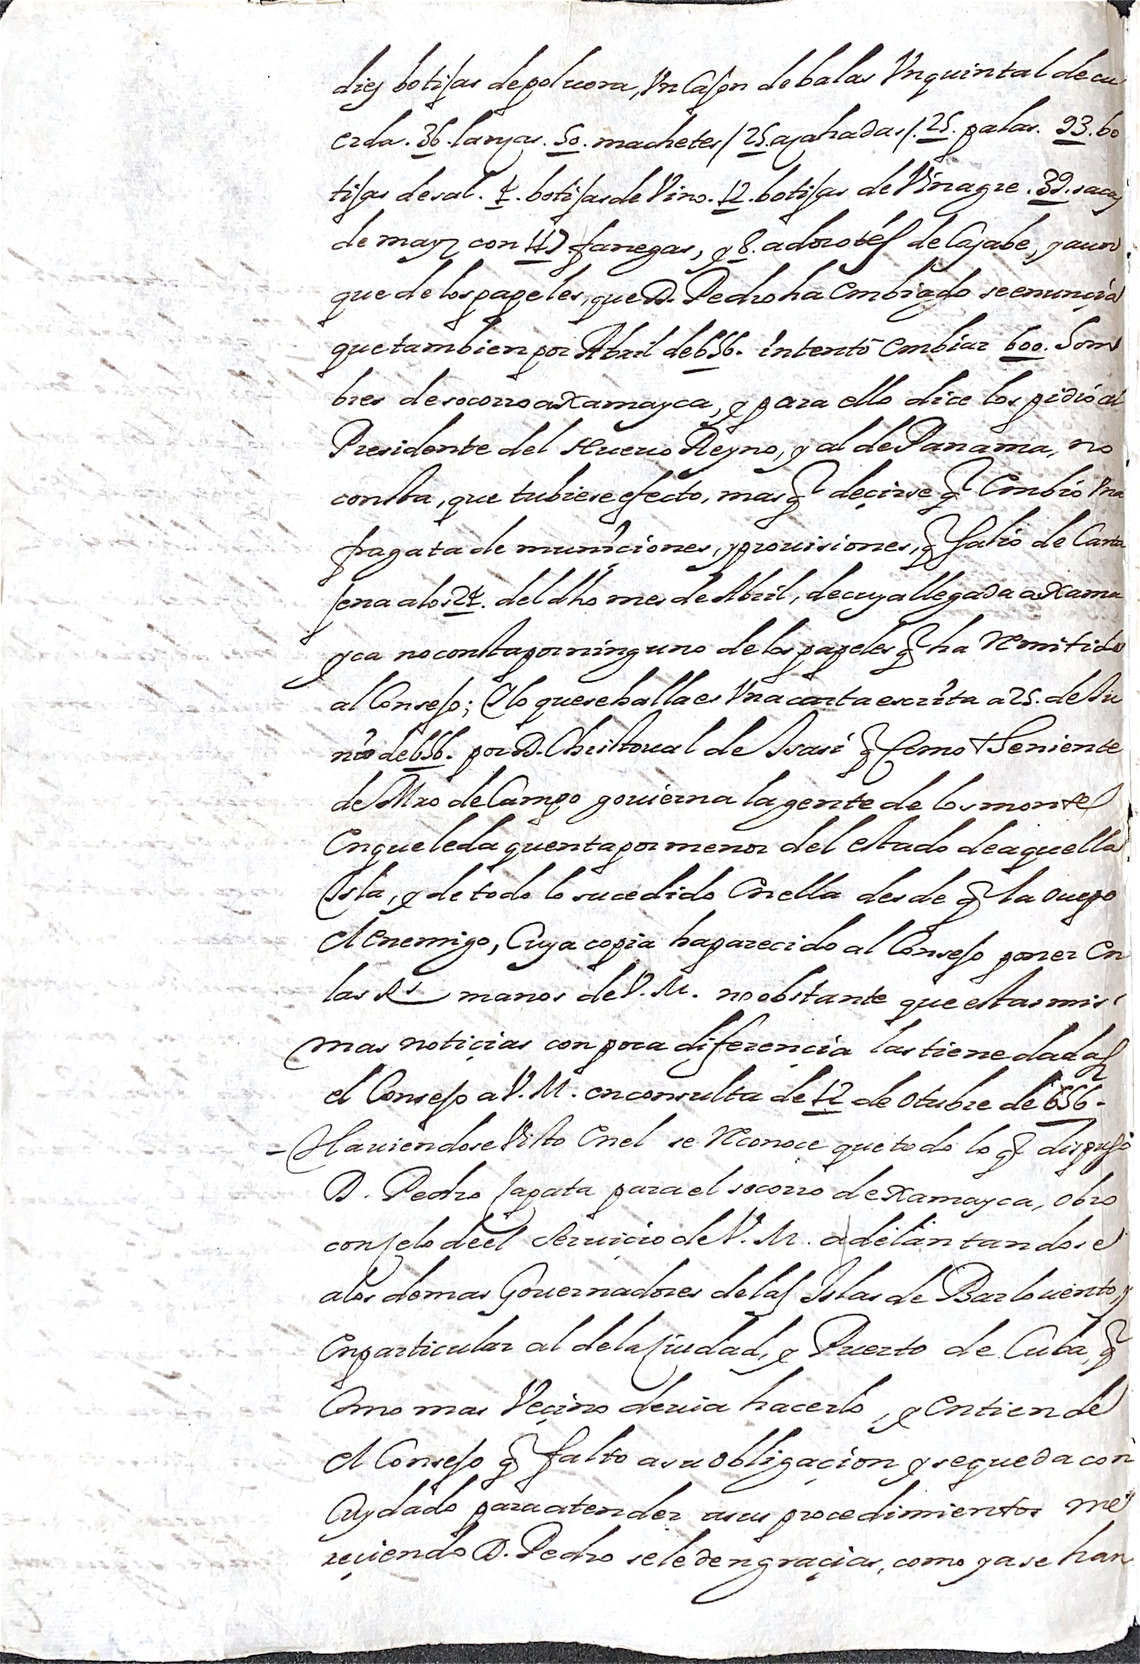 diez botijas de poluora, Vn Cajon de balas Vn quintal de cu
erda. 36. lanças. 50. machetes / 25 açahadas /. 25. palas. 23. bo
tijas de sal. 4. botijas de Vino. 12. botijas de Vinagre. 39. sacas
de mayz con 47 fanegas, y 8. adorotes de Caçabe, y aun
que de los papeles, que D. Pedro ha Embiado se enunçia
que tambien por Abril de 656. intentó Embiar 600. hom
bres de socorro a Xamayca, y para ello dice los pidió al
Presidente del Nueuo Reyno, y al de Panama, no
consta, que tubiese efecto, mas q deçirse q Embió Vna
fragata de muniçiones, y prouisiones, q salio de Carta
jena a los 24. del dho mes de Abril, de cuya llegada a Xama
yca no consta por ninguno de los papeles q ha Remitido
al Consejo; Y lo que se halla es Vna carta escrita a 25. de Ju
nio de 656. por D. Christoual de Isasi q Como Theniente
de Mro de Campo gouierna la gente de los montes
En que le da quenta por menor del estado de aquella
Isla, y de todo lo sucedido En ella desde q la ocupo
el enemigo, Cuya copia ha parecido al Consejo poner En
las Rs manos de V. M. no obstante que estas mis
mas notiçias con poca diferençia las tiene dadas
el Consejo a V. M. en consulta de 12 de Otubre de 656.
= Hauiendose Visto En el se Reconoce que todo lo q dispuso
D. Pedro Sapata para el socorro de Xamayca, obro
con zelo de el seruiçio de V. M. adelantandose
a los demas Gouernadores de las Islas de Barlouento, y
En particular al de la Ciudad, y Puerto de Cuba, q
Como mas Veçino deuia hacerlo, y Entiende
el Consejo q falto a su obligaçion y se queda con
Cuydado para atender a sus procedimientos me
reçiendo D. Pedro se le den graçias, como ya se han